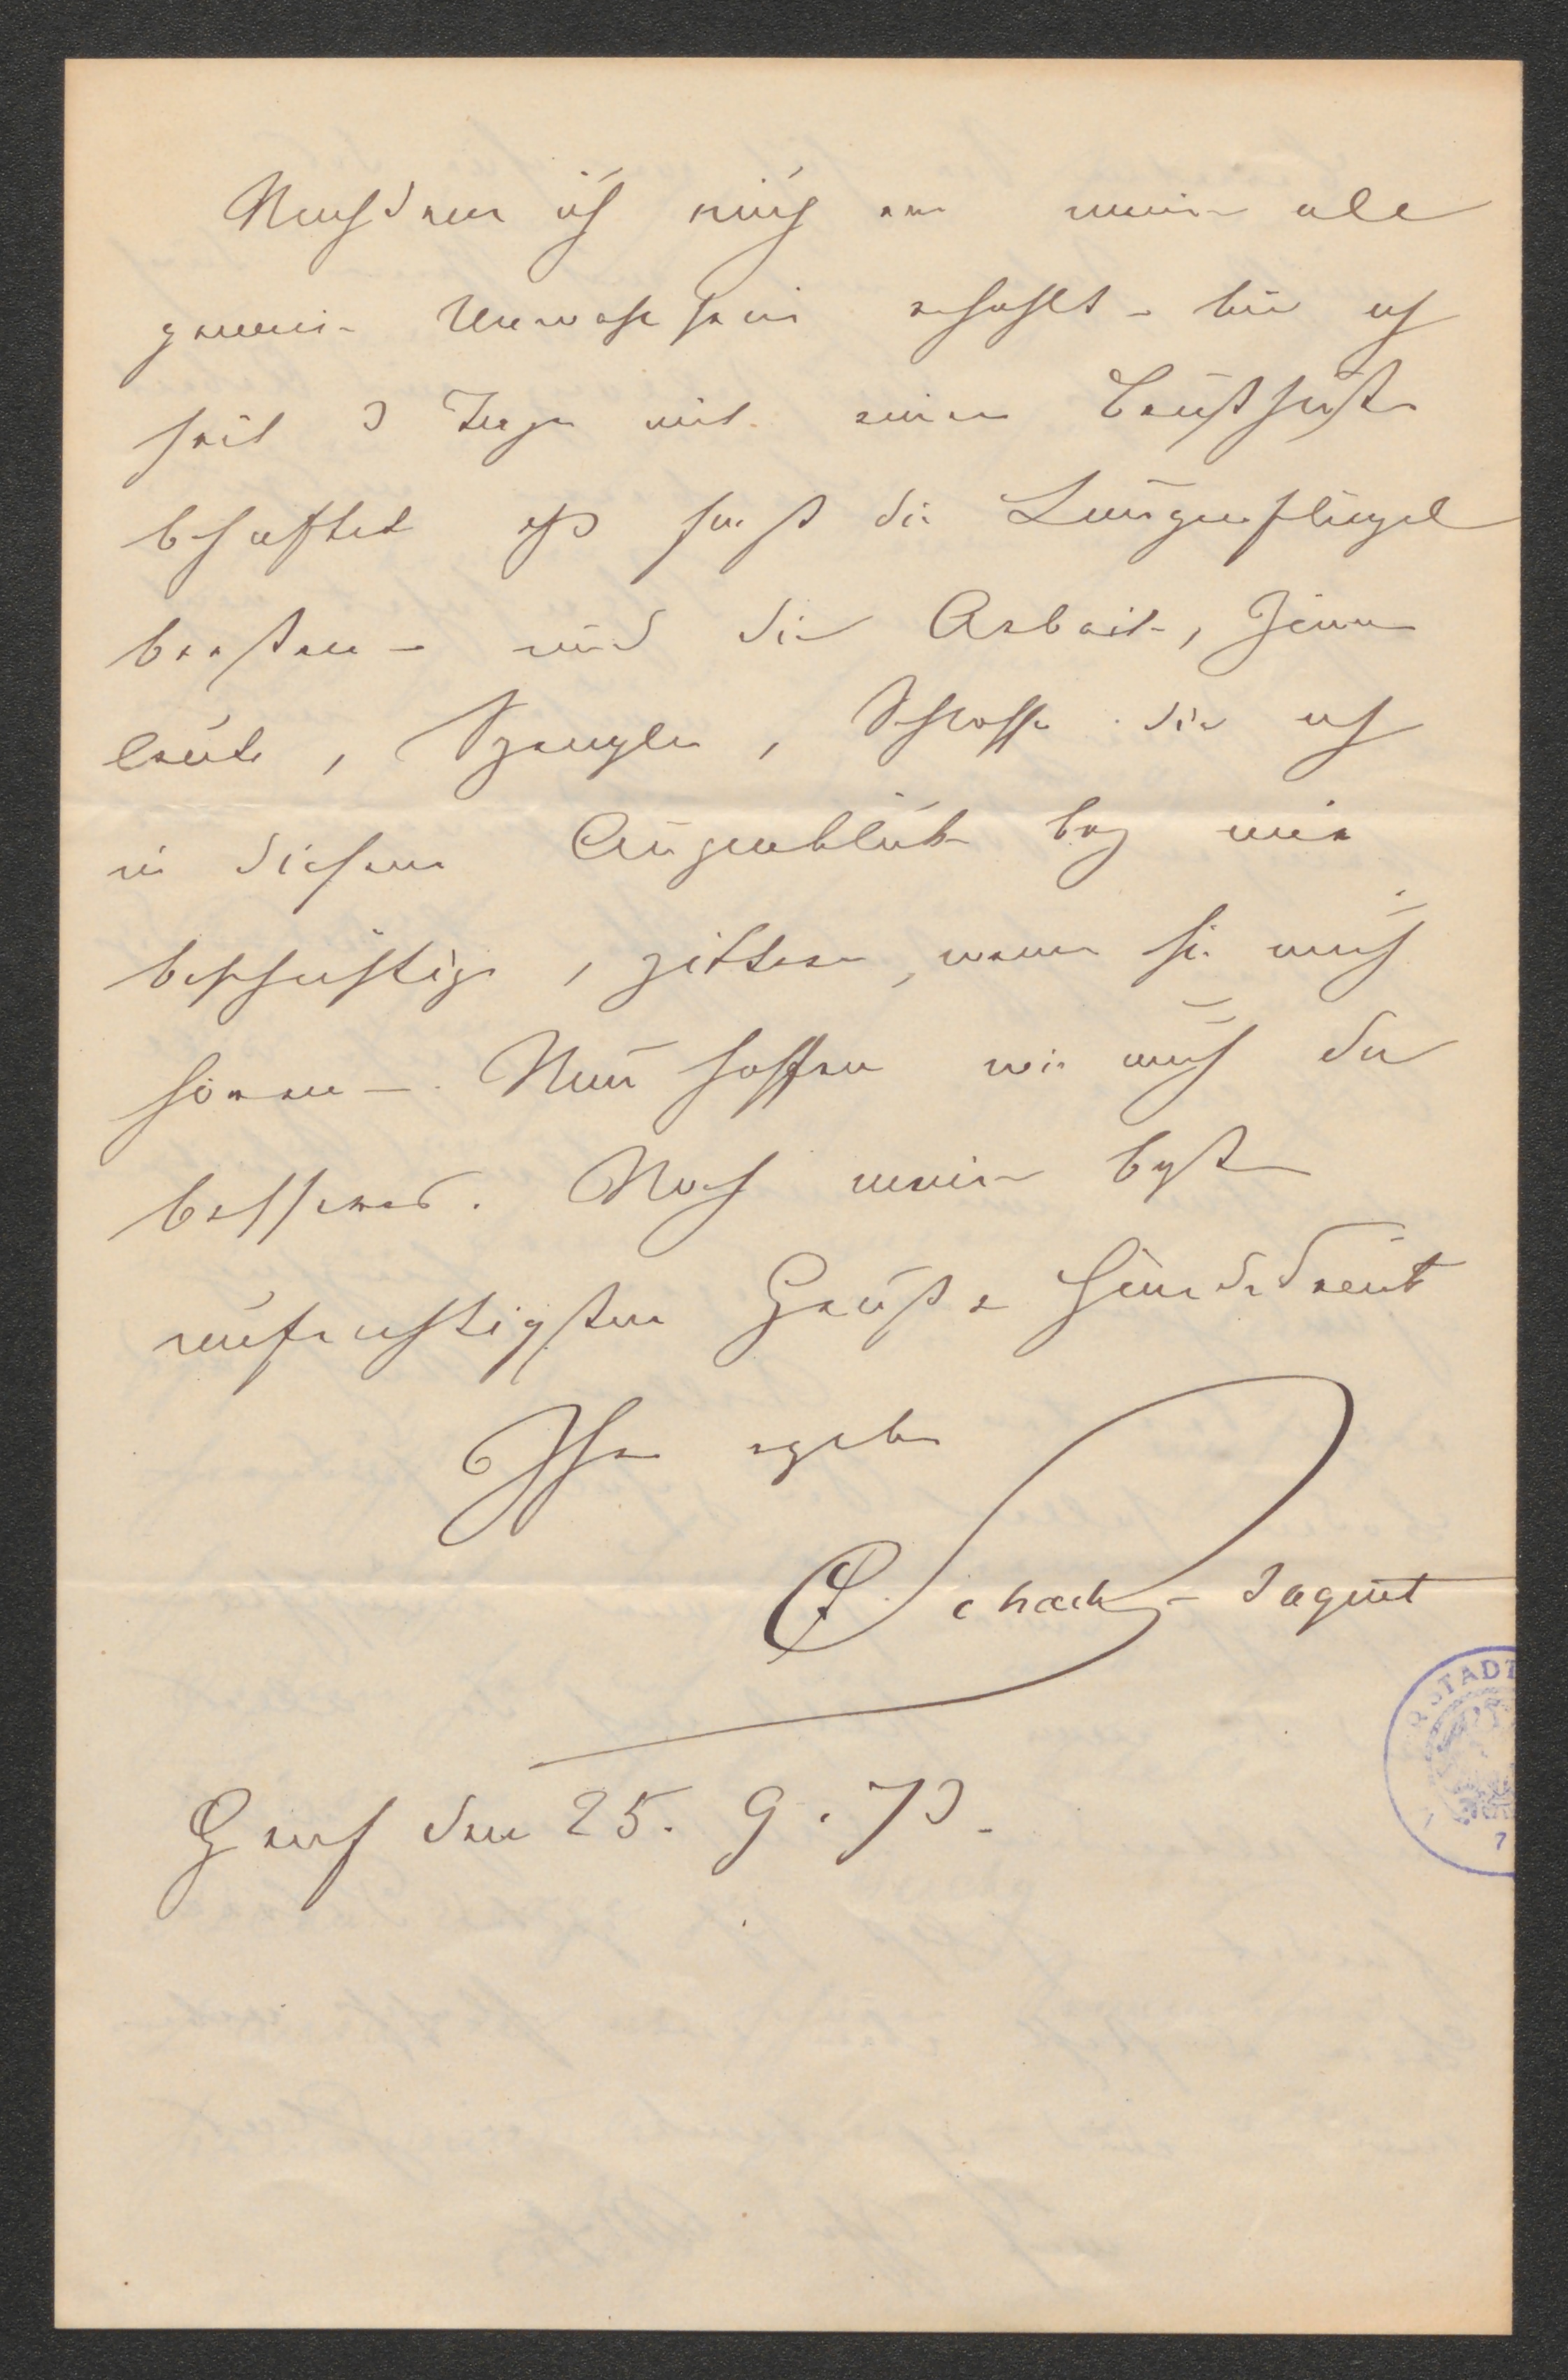 Nachdem ich mich von meine alle
gemein Unwohlsein erhohlt – bin ich
seit 3 Tage mit einen Brusthuste
behaftet das fast die Lungenflügel
bersten – und die Arbeit, Zimm
leute, Spengler, Schlosse die ich
in diesem Augenblicke bey mir
beschäftige, zittern, wenn sie mich
hören –. Nun hoffen wir auch da
besseres. Noch meine beste
aufrichtigsten Grüße Händedruck
Ihr ergeb
Schack-Jaquet
Genf den 25. 9. 73.
RSTADT
7